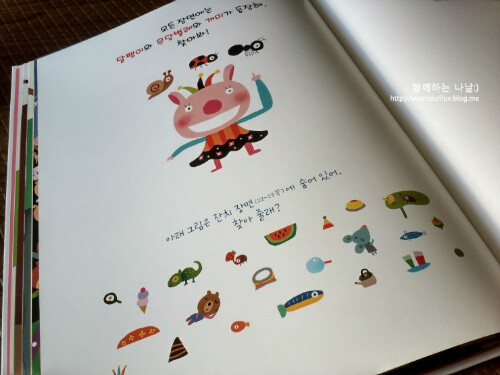 모든 장면에는
달팽이와 무당벌레와 개미가 등장해.
찾아봐!
함께하는 나날:)
아래 그림은 잔치 장면(22~23쪽)에 숨어 있어.
찾아 줄래?